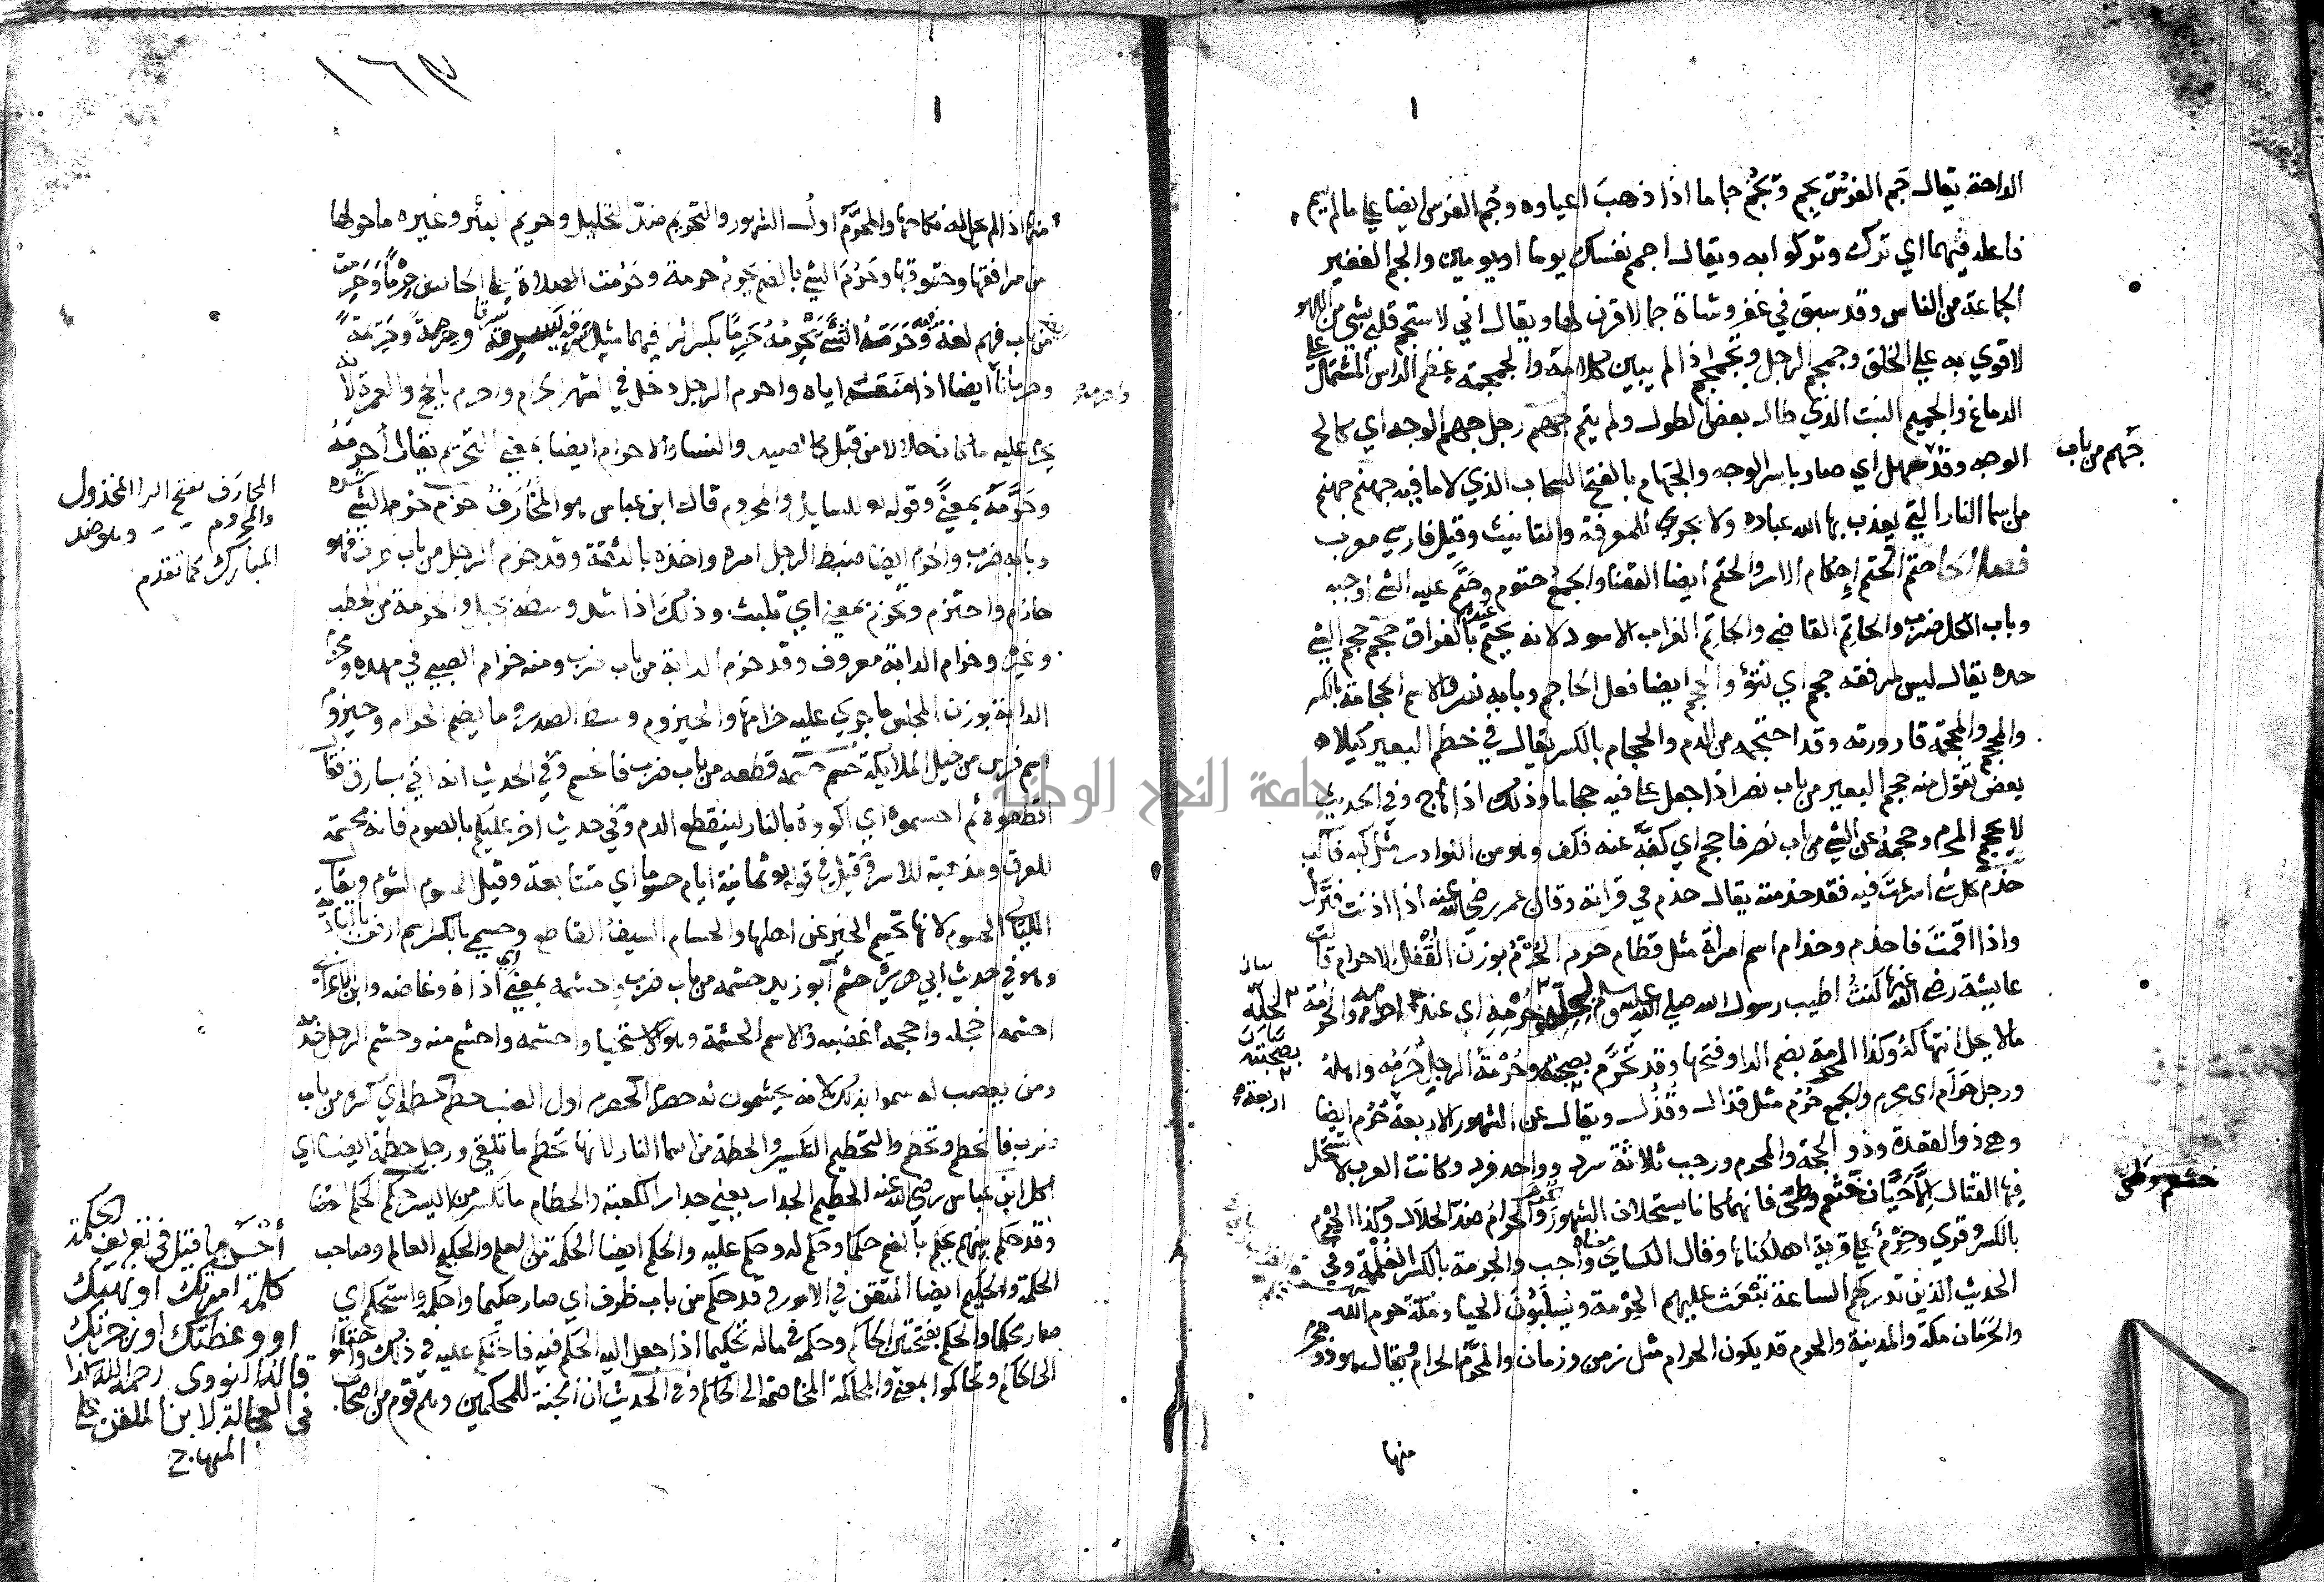 الراحة يقال جم الفرس يجم ويجم جماما اذا ذهب اعياوه وجم الفرس ايضا على ما لم يسم
فاعله فيهما اي ترك وتركوا به ويقال اجمم نفسك يوما او يومين والجم الغفير
الجماعة من الناس وقد سبق في غفر وشاة جما لا قرن لها ويقال اني لاستجم قلبي بشي من اللهو
لاقوي به علي الخلق وجمجم الرجل وتجمجم اذا لم يبين كلامه والجمجمة عظم الراس المشتمل علي
الدماغ والجميم النبت الذي طال بعض الطول ولم يتم جهم رجل جهم الوجه اي كالح
الوجه وقد جهم من باب سهل اي صار باسر الوجه والجهام بالفتح السحاب الذي لا ما فيه جهنم جهنم
من اسما النار التي يعذب بها الله عباده ولا يجري للمعرفة والتانيث وقيل فارسي معرب
فصل الحا حتم الحتم إحكام الامر والحتم ايضا القضا والجمع حتوم وحتم عليه الشي اوجبه
وباب الكل ضرب والحاتم القاضي والحاتم الغراب الاسود لانه يحتم عندهم بالفراق حجم حجم الشي
حده يقال ليس لمرفقه حجم اي نتؤ والحجم ايضا فعل الحاجم وبابه نصر والاسم الحجامة بالكسر
والمحجم والمحجمة قارورته وقد احتجم من الدم والحجام بالكسر يقال في خطم البعير كيلا
يعض تقول منه حجم البعير من باب نصر اذا جعل على فيه حجاما وذلك اذا هاج وفي الحديث
لا يحجم المحرم وحجمه عن الشي من باب نصر فاحجم اي كفه عنه فكف وهو من النوادر مثل كبه فاكب
حذم كل شي اسرعت فيه فقد حذمته يقال حذم في قراته وقال عمر رضي الله عنه اذا اذنت فترسل
واذا اقمت فاحذم وحذام اسم امرأة مثل قطام حرم الحرم بوزن القفل الاحرام قالت
عايشة رضي الله عنها كنت اطيب رسول الله صلي الله عليه وسلم لحله وحرمه اي عند احرامه والحرمة
مالا يحل انتهاكه وكذا المحرمة بضم الرا وفتحها وقد تحرم بصحبته وحرمة الرجل حرمه واهله
ورجل حرام اي محرم والجمع حرم مثل قذال وقذل ويقال عن الشهور الاربعة حرم ايضا
وهي ذو القعدة وذو الحجة والمحرم ورجب ثلاثة سرد وواحد فرد وكانت العرب لا تستحل
فيها القتال الا حيان خثعم وطي فانهما كانا يستحلان الشهور والحرام ضد الحلال وكذا الحرم
بالكسر وقري وحرم على قرية اهلكناها وقال الكساي معناه واجب والحرمة بالكسر الغلمة وفي
الحديث الذين تدركهم الساعة تبعث عليهم الحرمة ويسلبون الحيا ومكة حرم الله
والحرمان مكة والمدينة والحرم قد يكون الحرام مثل زمن وزمان والمحرم الحرام ويقال هو ذو محرم
منها
جهم من باب
خثعم وطي
١٦٣
منها اذا لم يحل له نكاحها والمحرم اول الشهور والتحريم ضد التحليل وحريم البئر وغيره ما حولها
من مرافقها وحقوقها وحرم الشي بالضم يحرم حرمة وحرمت الصلاة علي الحائض حرما وحرمت
من باب فهم لغة وحرمه الشي يحرمه حرما بكسر الرا فيهما مثل سرقه يسرقه سرقا وحرمة وحريمة
وحرمانا ايضا اذا منعته اياه واحرم الرجل دخل في الشهر الحرام واحرم بالحج والعمرة لانه
يحرم عليه ما كان حلالا من قبل كالصيد والنسا والاحرام ايضا بمعني التحريم يقال أحرمه
وحرمه بمعني وقوله تعالي للسايل والمحروم قال ابن عباس هو المحارف حزم حزم الشي شده
وبابه ضرب والحزم ايضا ضبط الرجل امره واخذه بالثقة وقد حزم الرجل من باب ظرف فهو
حازم واحتزم وتحزم بمعني اي تلبب وذلك اذا شد وسطه بحبل والحزمة من الحطب
وغيره وحزام الدابة معروف وقد حزم الدابة من باب ضرب ومنه حزام الصبي في مهده ومحزم
الدابة بوزن المجلس ما جري عليه حزامها والحيزوم وسط الصدر وما يضم الحزام وحيزوم
اسم فرس من خيل الملايكة حسم حسمه قطعه من باب ضرب فانحسم وفي الحديث انه اتي بسارق فقال
اقطعوه ثم احسموه اي اكووه بالنار لينقطع الدم وفي حديث اخر عليكم بالصوم فانه محسمة
للعرق ومذهبة للاشر وقيل في قوله تعالي ثمانية ايام حسوما اي متتابعة وقيل الحسوم الشوم ويقال
الليالي الحسوم لانها تحسم الخير عن اهلها والحسام السيف القاطع وحسمي بالكسر اسم ارض بالبادية
وهو في حديث ابي هريرة حشم أبو زيد حشمه من باب ضرب واحشمه بمعني اي اذاه وغاضه وابن الاعرابي
احشمه اخجله واحشمه اغضبه والاسم الحشمة وهو الاستحيا واحشمه واحتشم منه وحشم الرجل خدمه
ومن يغضب له سموا بذلك لانهم يحشمون له حصرم الحصرم اول العنب حطم حطمه اي كسره من باب
ضرب فانحطم وتحطم والتحطيم التكسير والحطمة من اسما النار لانها تحطم ما تلقي ورجل حطمة ايضا اي
اكل ابن عباس رضي الله عنه الحطيم الجدار يعني جدار الكعبة والحطام ما تكسر من اليبس حكم الحكم القضا
وقد حكم بينهم يحكم بالضم حكما وحكم له وحكم عليه والحكم ايضا الحكمة من العلم والحكيم العالم وصاحب
الحكمة والحكيم ايضا المتقن في الامور وقد حكم من باب ظرف اي صار حكيما واحكمه فاستحكم اي
صار محكما والحكم بفتحتين الحاكم وحكمه في ماله تحكيما اذا جعل اليه الحكم فيه فاحتكم عليه في ذلك واحتكموا
الى الحاكم وتحاكموا بمعني والمحاكمة المخاصمة الى الحاكم وفي الحديث ان الجنة للمحكمين وهم قوم من اصحاب
المحارف بفتح الرا المخذول
والمحروم وهو ضد
المبارك كما تقدم
أحسن ما قيل في تعريف الحكمة
كلمة امرتك او نهتك
او وعظتك او زجرتك
قاله النووي رحمه الله كذا
في العجالة لابن الملقن على
المنهاج
جامعة النجاح الوطنية